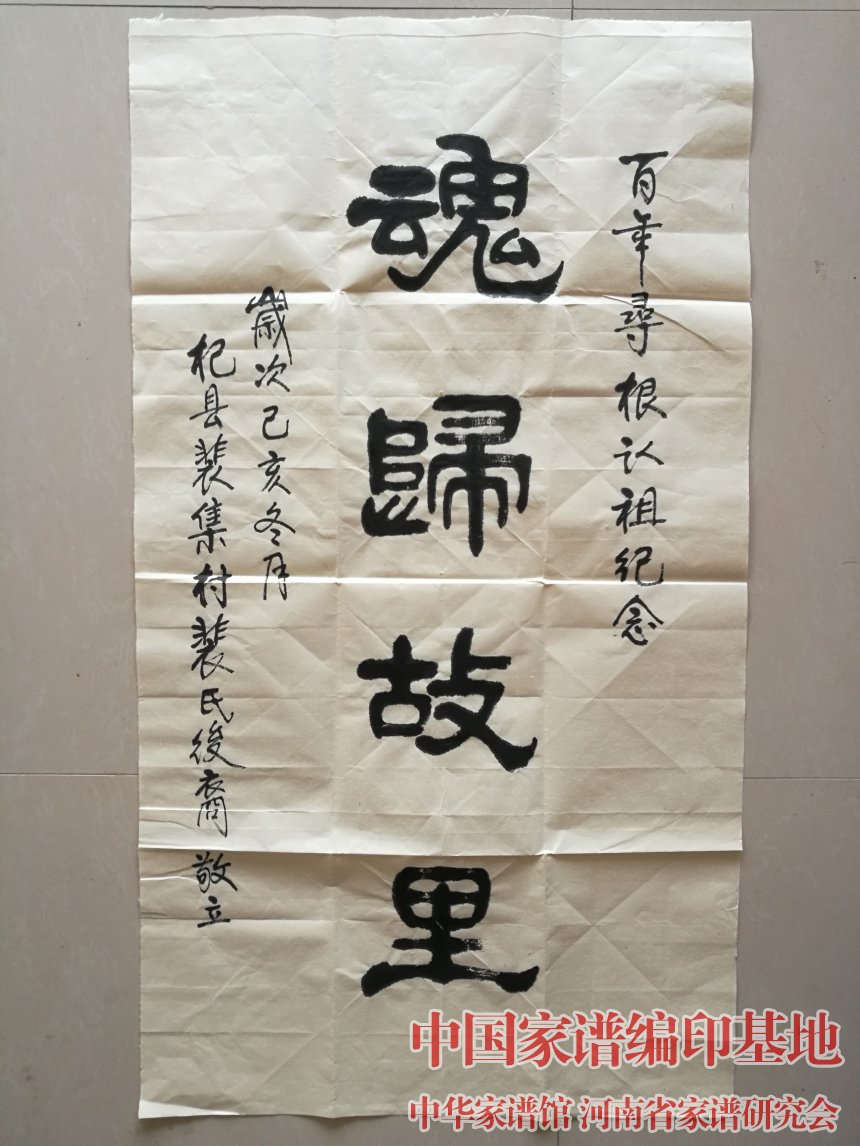 百年尋根认祖纪念
魂歸故里
歲次己亥冬月
杞县裴集村裴氏後裔 敬立
中国家谱编印基地
中华家谱馆 河南省家谱研究会